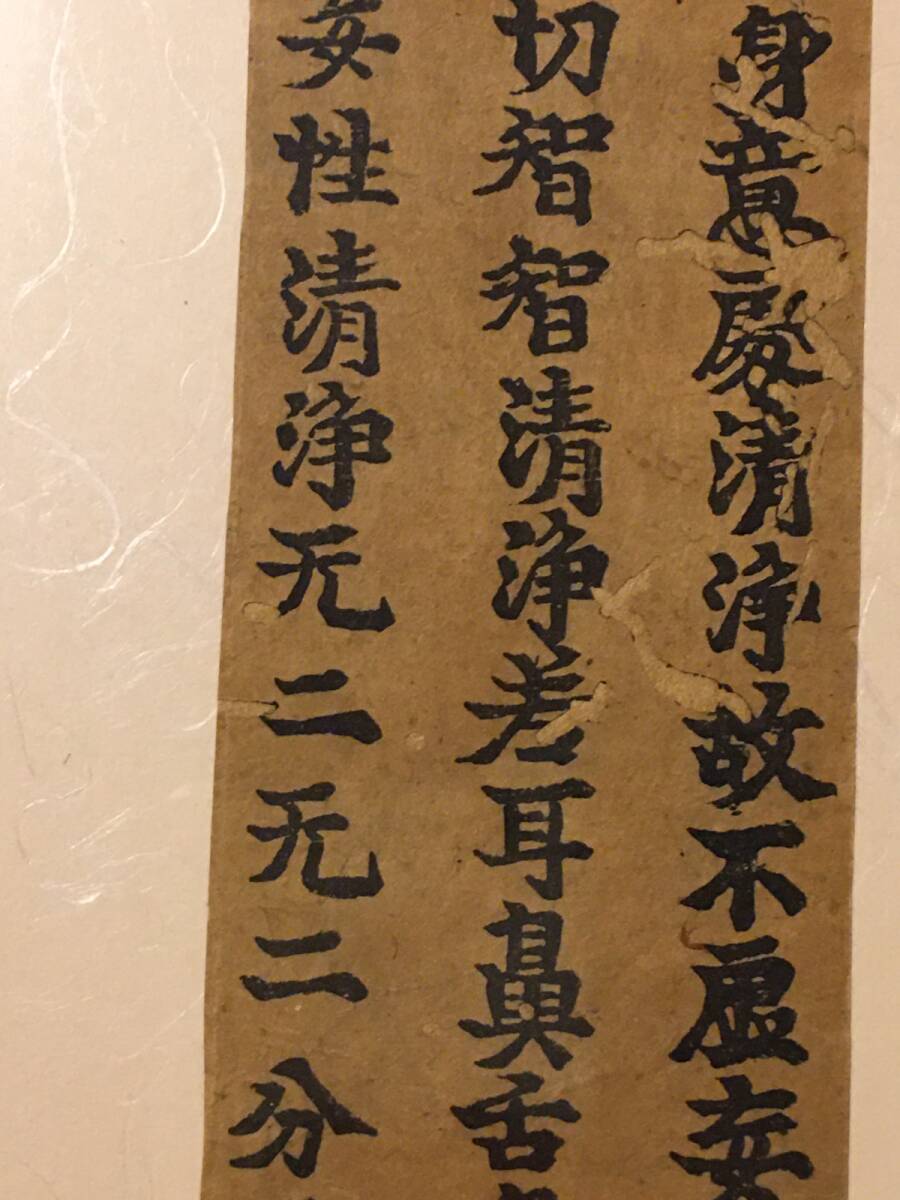 身意處清淨故不虛妄
切智智清淨若耳鼻舌
妄性清淨无二无二分